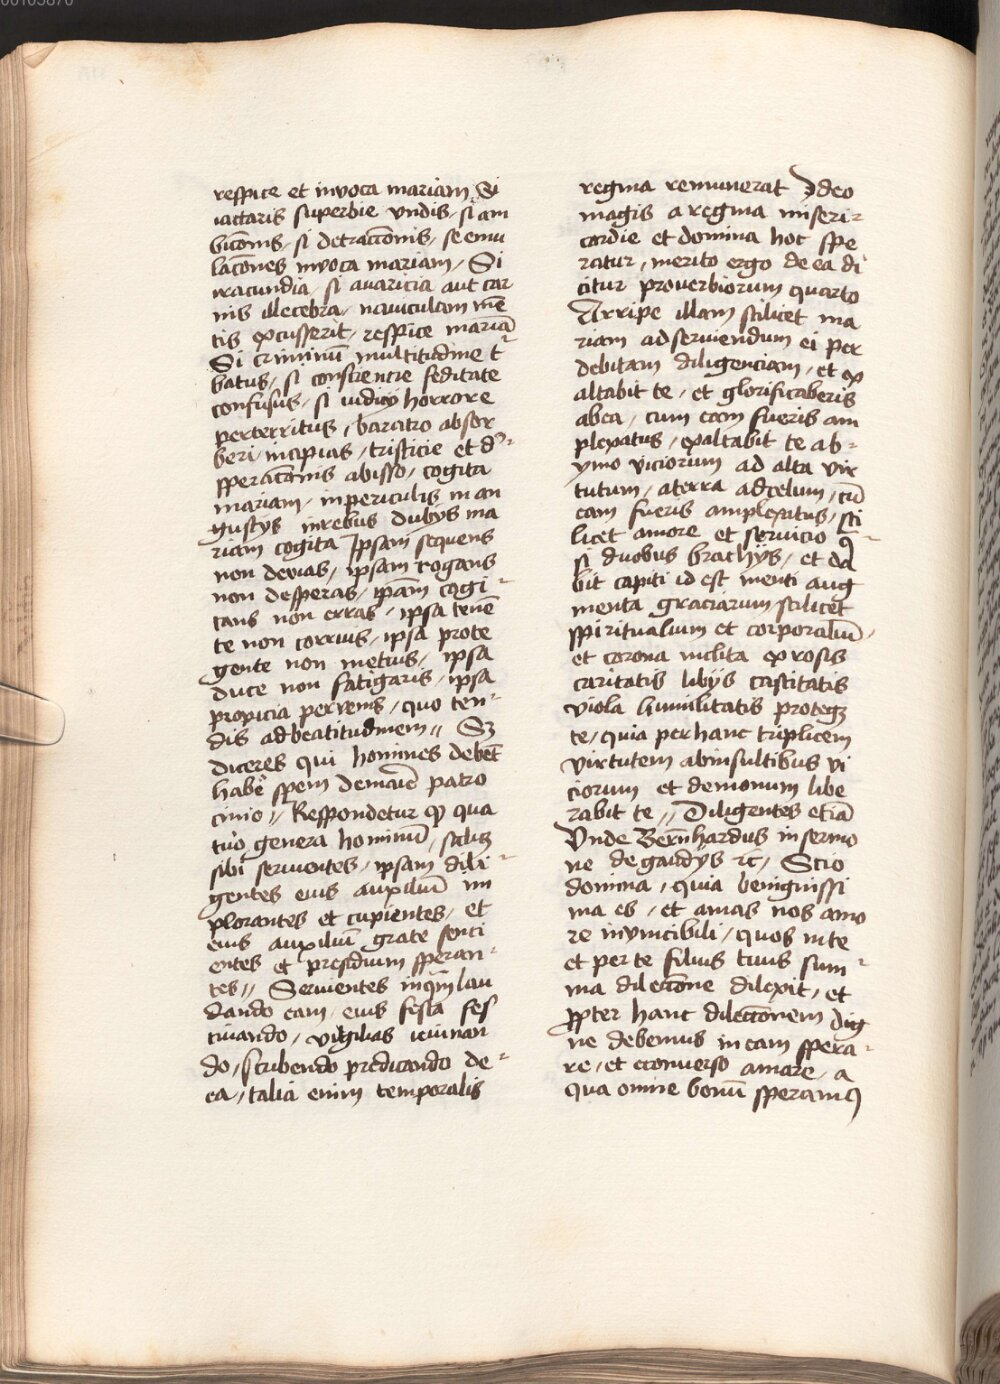 00105870
respice et invoca mariam Si
iactaris superbie vndis / si am
bicōnis / si detraccōnis / se emu
lacōnes invoca mariam / Si
iracundia / si auaricia aut car
nis illecebra / nauiculam mē
tis excusserit / respice mariā
Si criminū multitudine t᷑
batus / si consciencie feditate
confusus / si iudicij horrore
perterritus / baratro absor
beri incipias / tristicie et d᷑
speracōnis abisso / cogita
mariam / in periculis in an
gustijs in rebus dubijs ma
riam cogita Ipsam sequens
non devias / ipsam rogans
non desperas / ip̄am cogi
tans non erras / ipsa tenē
te non corruis / ipsa prote
gente non metuis / ipsa
duce non fatigaris / ipsa
propicia pervenis / quo ten
dis ad beatitudinem // Sꝫ
diceres qui homines debēt
habe᷑ spem de marie patro
cinio // Respondetur ꝙ qua
tuor genera hominū / scilicꝫ
sibi seruientes / ipsam dili
gentes eius auxiliū im
plorantes et cupientes / et
eius auxiliū grate senci
entes et presidium speran
tes // Seruientes inqm̄ lau
dando eam / eius festa fes
tiuando / vigilias ieiunan
do / scribendo predicando de
ea / talia enim temporalis
regina remunerat Ideo
magis a regina miseri
cordie et domina hoc spe
ratur / merito ergo de ea di
citur proverbiorum quarto
Arripe illam scilicet ma
riam ad seruiendum ei per
debitam diligenciam / et ex
altabit te / et glorificaberis
ab ea / cum eam fueris am
plexatus / exaltabit te ab
ymo viciorum ad alta vir
tutum / a terra ad celum / cū
eam fueris amplexatus / sci
licet amore et seruicio q̄
si duobus brachijs / et da
bit capiti id est menti aug
menta graciarum scilicet
spiritualium et corporaliū /
et corona inclita ex rosis
caritatis lilijs castitatis
viola humilitatis protegꝫ
te / quia per hanc triplicem
virtutem ab insultibus vi
ciorum et demonum libe
rabit te // Diligentes etiā
Vnde Bern̄hardus in sermo
ne de gaudijs ⁊c̄ / Scio
domina / quia benignissi
ma es / et amas nos amo
re invincibili / quos in te
et per te filius tuus sum
ma dileccōne dilexit / et
ꝓpter hanc dileccōnem dig
ne debemus in eam spera
re / et econuerso amare / a
qua omne bonū speramꝰ